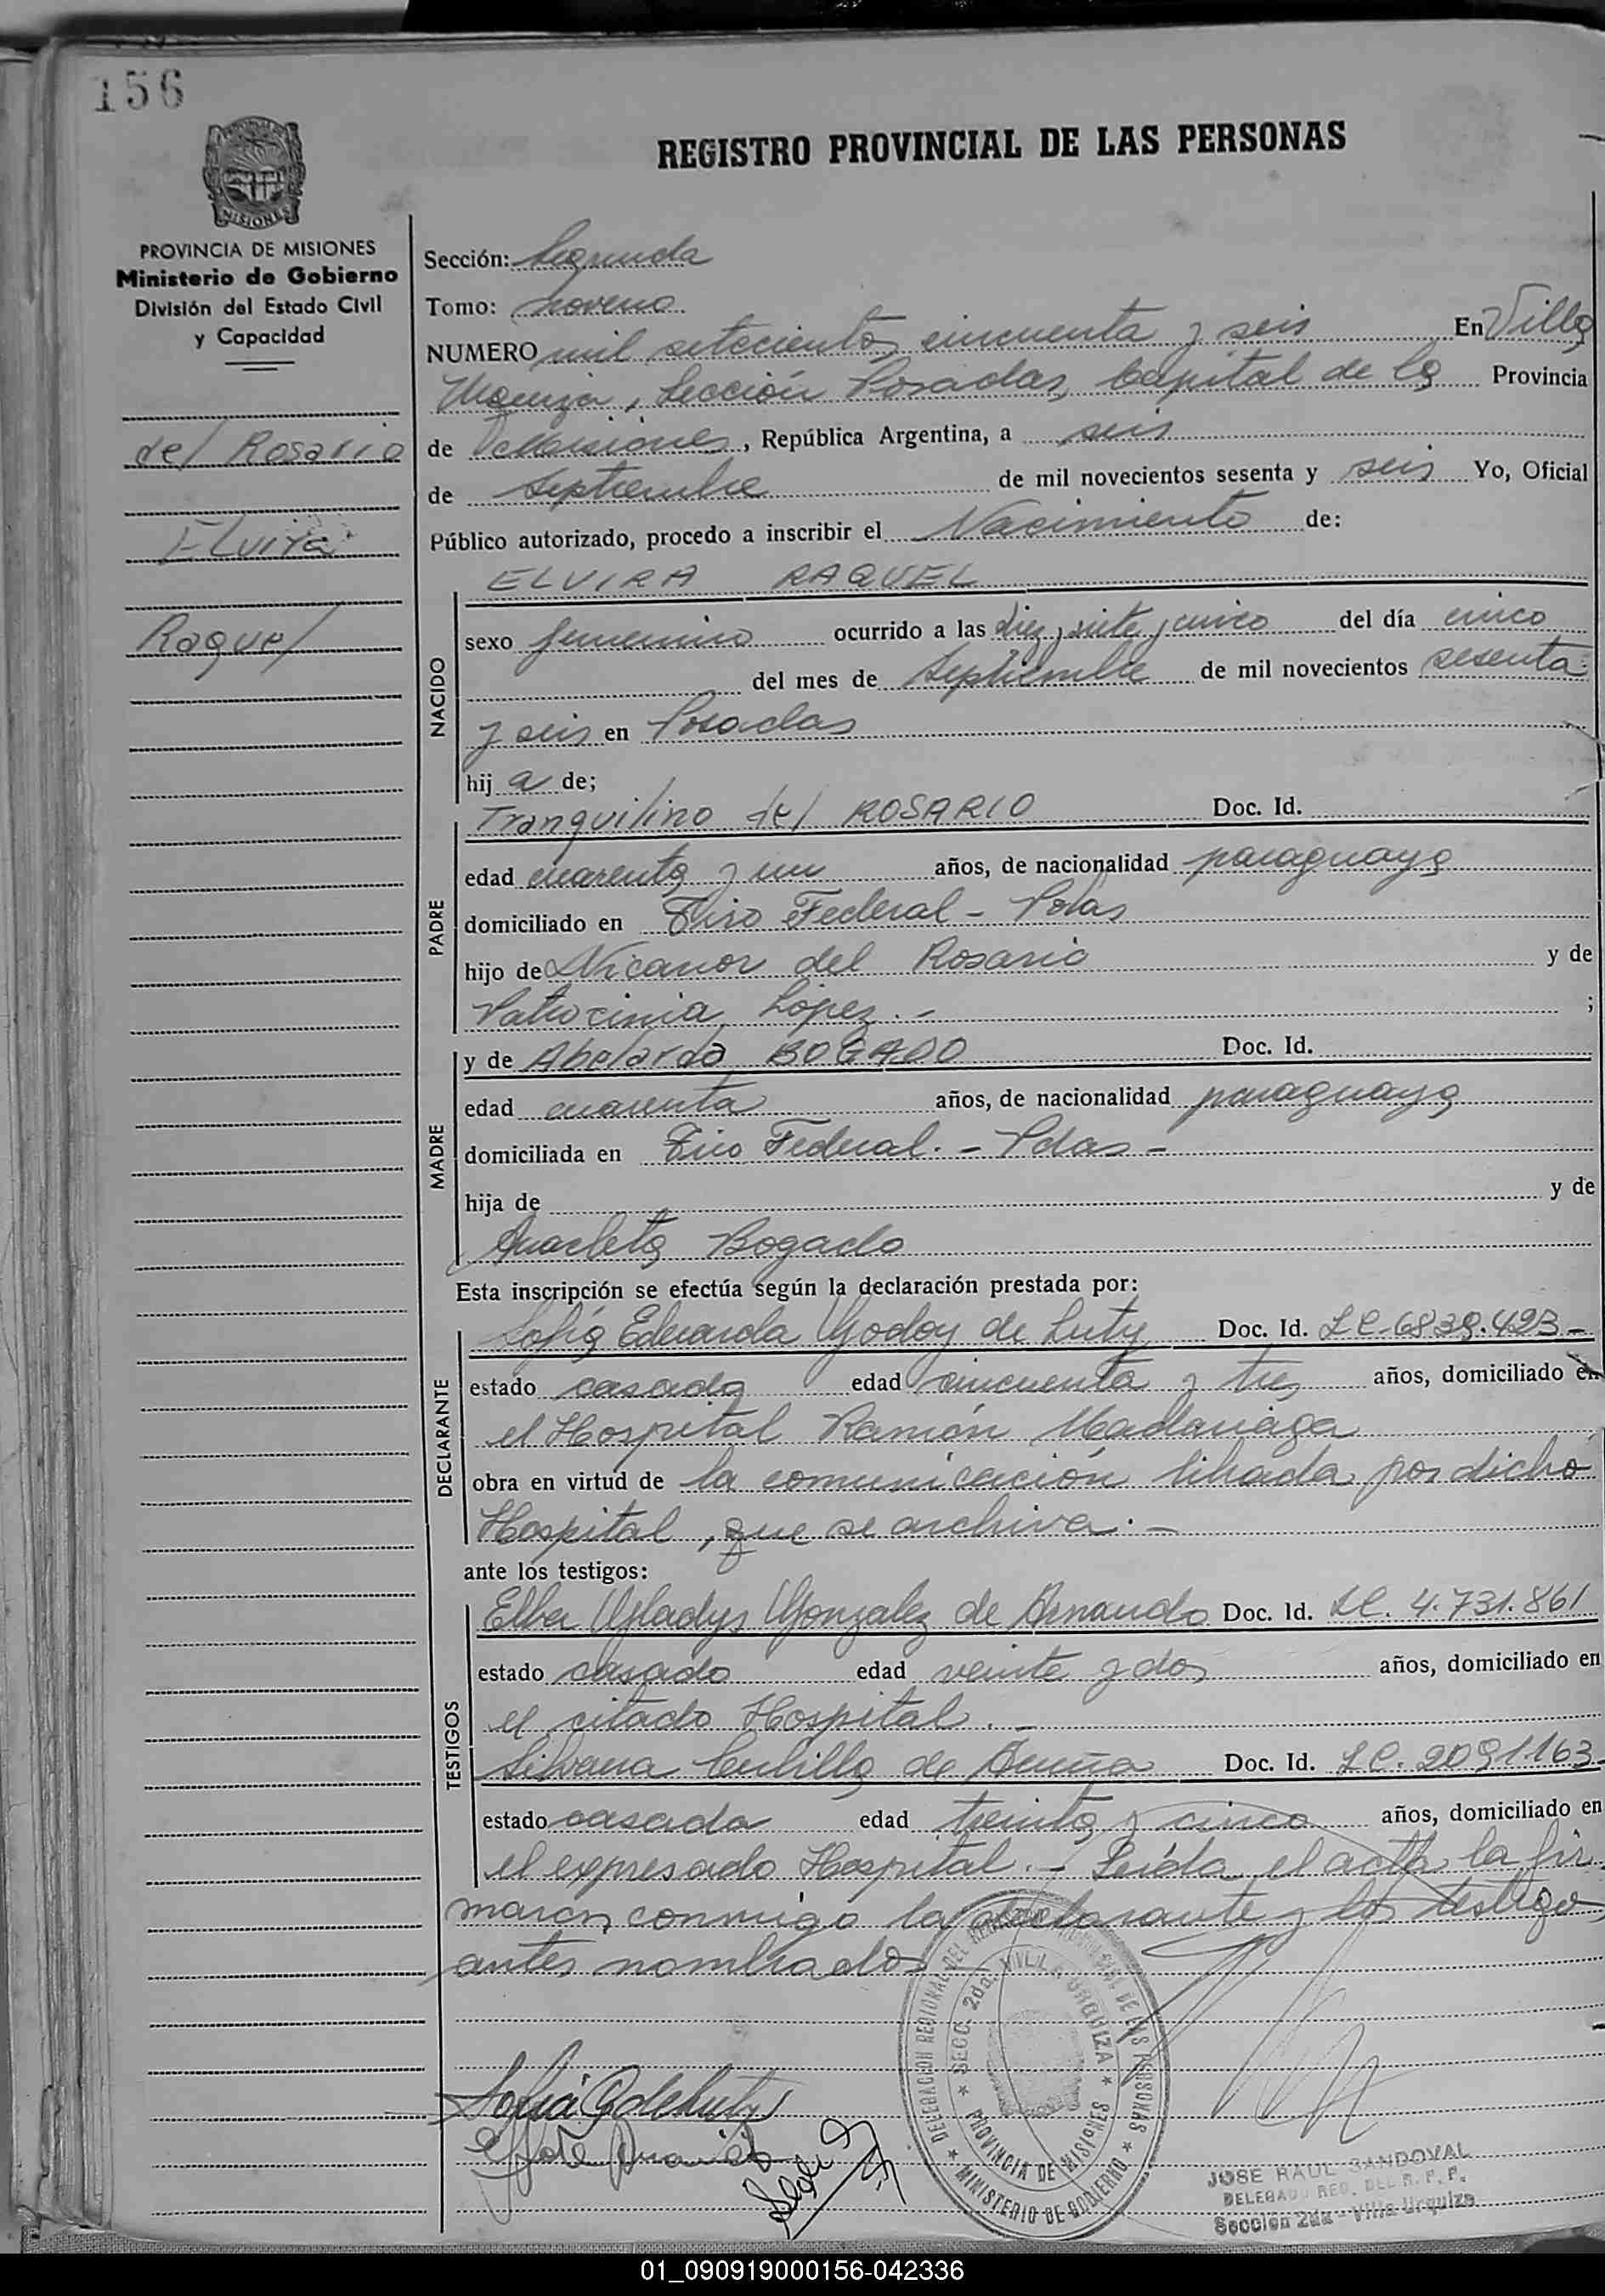 156
REGISTRO PROVINCIAL DE LAS PERSONAS
MISIONES
PROVINCIA DE MISIONES
Ministerio de Gobierno
División del Estado Civil
y Capacidad
del Rosario
Elvira
Raquel
Sección: Segunda
Tomo: noveno
NUMERO mil setecientos cincuenta y seis En Villa
Urquiza, Sección Posadas, Capital de la Provincia
de Misiones, República Argentina, a seis
de Septiembre de mil novecientos sesenta y seis Yo, Oficial
Público autorizado, procedo a inscribir el Nacimiento de:
NACIDO
ELVIRA RAQUEL
sexo femenino ocurrido a las diez y siete y cinco del día cinco
del mes de Septiembre de mil novecientos sesenta
y seis en Posadas
hij a de;
PADRE
Tranquilino del ROSARIO Doc. Id.
edad cuarenta y un años, de nacionalidad paraguaya
domiciliado en Tiro Federal - Pdas
hijo de Nicanor del Rosario y de
Patrocinia López. - ;
MADRE
y de Abelarda BOGADO Doc. Id.
edad cuarenta años, de nacionalidad paraguaya
domiciliada en Tiro Federal. - Pdas -
hija de y de
Anacleta Bogado
Esta inscripción se efectúa según la declaración prestada por:
DECLARANTE
Sofía Eduarda Godoy de Luty Doc. Id. LC-6839.493-
estado casada edad cincuenta y tres años, domiciliado en
el Hospital Ramón Madariaga
obra en virtud de la comunicación librada por dicho
Hospital, que se archiva. -
ante los testigos:
TESTIGOS
Elba Gladys Gonzalez de Arnaudo Doc. Id. LC. 4.731.861
estado casado edad veinte y dos años, domiciliado en
el citado Hospital. -
Silvana de Acuña Doc. Id. LC. 2091163-
estado casada edad treinta y cinco años, domiciliado en
el expresado Hospital. - Leída el acta la fir
maron conmigo la declarante y los testigos
antes nombrados
DELEGACION REGIONAL DEL REGISTRO PROVINCIAL DE LAS PERSONAS
SECC. 2da. VILLA URQUIZA
PROVINCIA DE MISIONES
MINISTERIO DE GOBIERNO
Sofía G de Luty
JOSE RAUL SANDOVAL
DELEGADO REG. DEL R. P. P.
Sección 2da - Villa Urquiza
01_090919000156-042336